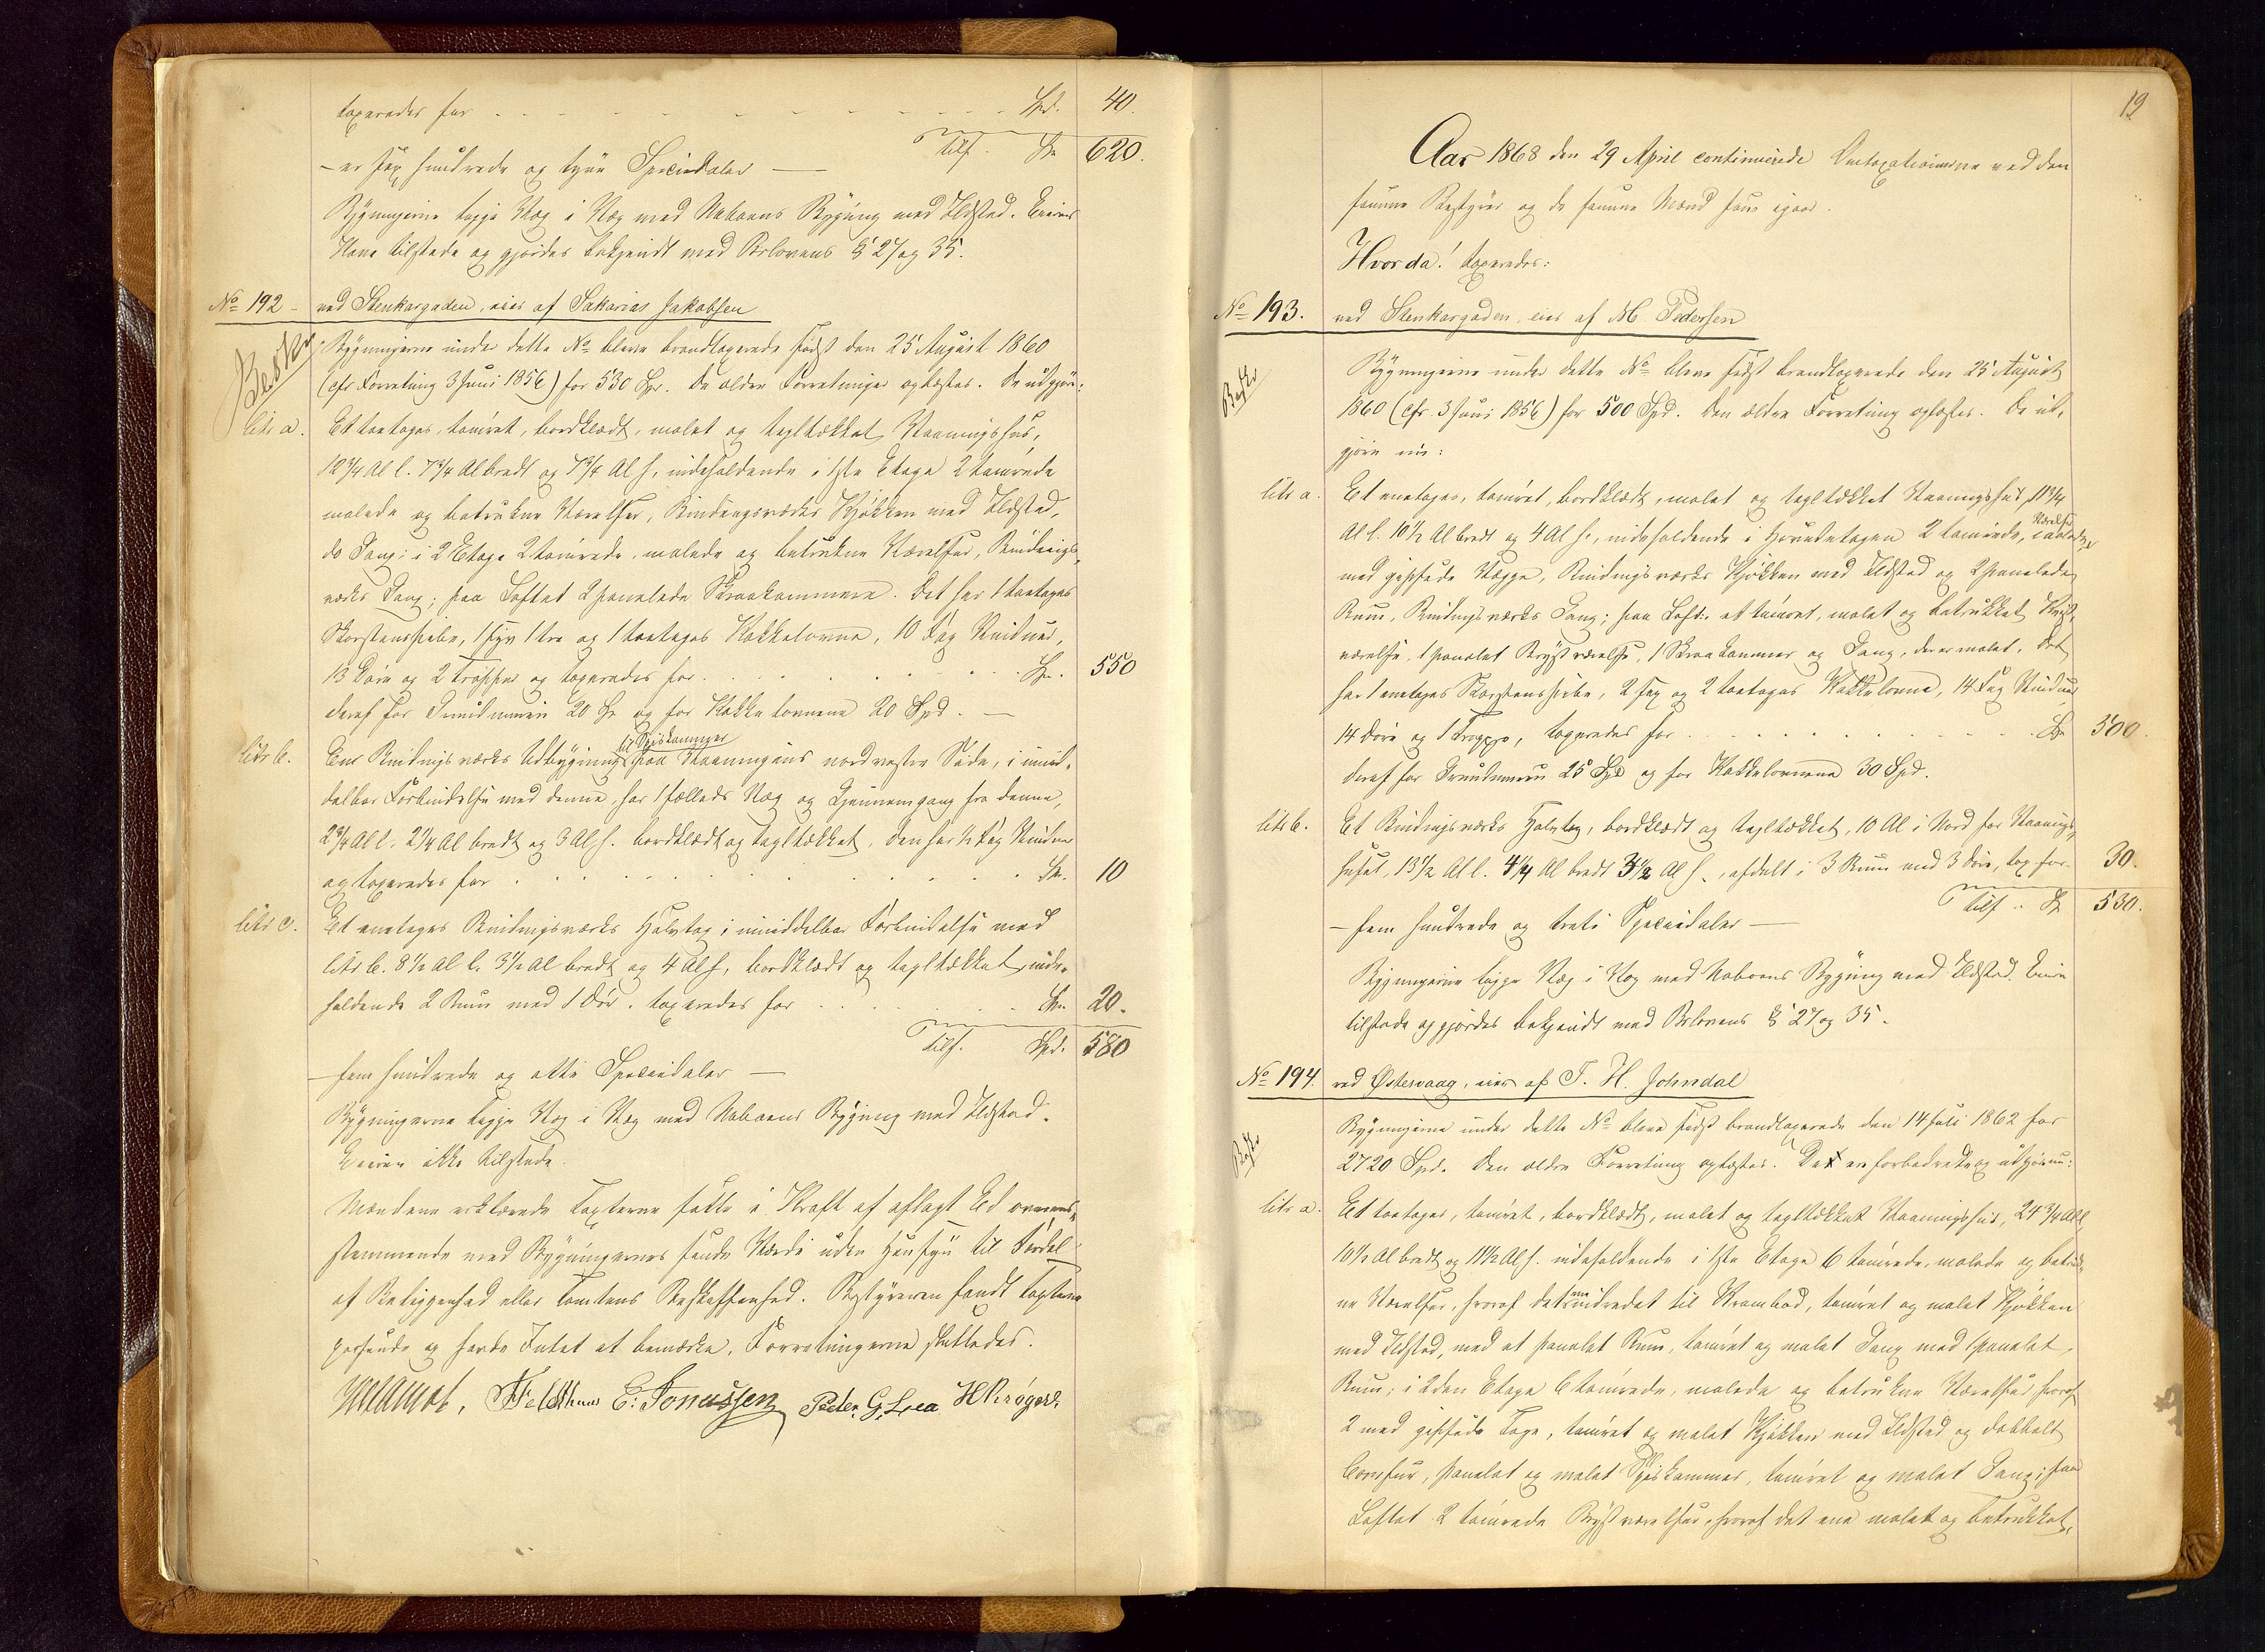 taxeredes for . . . . . . . . . . Spd. 40.
Tils. Sp 620.
– er sex hundrede og tyve Speciedaler —
Bygningerne ligge Væg i Væg med Naboens Bygning med Ildsted. Eierens
Kone tilstede og gjordes bekjendt med Brlovens § 27 og 35.
No 192 – ved Stenkargaden, eies af Sakarias Jakobsen
Bygningerne under dette No bleve brandtaxerede sidst den 25 August 1860
(cfr Forretning 3 Juni 1856) for 530 Spd. De ældre Forretninger oplæstes. De udgjøre:
litr a. Et toetages, tømret, bordklædt, malet og tegltækket Vaaningshus,
12 3/4 Al l. 7 3/4 Al bredt og 7 3/4 Al h, indeholdende i 1ste Etage 2 tømrede
malede og betrukne Værelser, Bindingsværks Kjøkken med Ildsted,
do Gang; i 2 Etage 2 tømrede, malede og betrukne Værelser, Bindings-
værks Gang; paa Loftet 2 panelede Skraakammere. Det har 1 toetages
Skorstenspibe, 1 fyr 1 tre og 1 toetages Kakkelovne, 10 Fag Vinduer,
13 Døre og 2 Trapper og taxeredes for . . . . . Sp. 550
deraf for Grundmuren 20 Sp og for Kakkelovnene 20 Spd. —
litr b. Een Bindingsværks Udbygning til Spiskammer paa Vaaningens nordvestre Side, i umid-
delbar Forbindelse med denne, har 1 fælleds Væg og Gjennemgang fra denne,
2 3/4 Al l. 2 1/4 Al bredt og 3 Al h. bordklædt og tegltækket, den har 1/2 Fag Vinduer
og taxeredes for . . . . . . . . Sp. 10
litr c. Et enetages Bindingsværks Halvtag i umiddelbar Forbindelse med
litr b. 8 1/2 Al l. 3 1/2 Al bredt og 4 Al h, bordklædt og tegltækket, inde-
holdende 2 Rum med 1 Dør. taxeredes for . . . . Sp. 20.
Tils. Spd. 580
– fem hundrede og otti Speciedaler —
Bygningerne ligge Væg i Væg med Naboens Bygning med Ildsted.
Eieren ikke tilstede.
Mændene erklærede Taxterne satte i Kraft af aflagt Ed overens-
stemmende med Bygningernes sande Værdi uden Hensyn til Fordel
af Beliggenhed eller Tomtens Beskaffenhed. Bestyreren fandt Taxterne
passende og havde Intet at bemærke. Forretningerne sluttedes.
Feldthus E. Tonnessen Peder G. Lea H Krøger
19
Aar 1868 den 29 April continuerede Omtaxationerne ved den
samme Bestyrer og de samme Mænd som igaar.
Hvor da! taxeredes:
No 193. ved Stenkargaden eies af M. Pedersen
Bygningerne under dette No bleve sidst brandtaxerede den 25 August
1860 (cfr. 3 Juni 1856) for 500 Spd. Den ældre Forretning oplæstes. De ud-
gjøre nu:
litr a. Et enetages, tømret, bordklædt, malet og tegltækket Vaaningshus 11 3/4
Al l. 10 1/2 Al bredt og 4 Al h., indeholdende i Hovedetagen 2 tømrede, malede Værelser
med gipsede Vægge, Bindingsværks Kjøkken med Ildsted og 2 panelede
Rum, Bindingsværks Gang; paa Loft: et tømret, malet og betrukket Kvist-
værelse, 1 panelet Brystværelse, 1 Skraakammer og Gang, der er malet. Det
har 1 enetages Skorstenspibe, 2 sex og 2 toetages Kakkelovne, 14 Fag Vinduer
14 Døre og 1 Trappe, taxeredes for . . . . . . Sp 500.
deraf for Grundmuren 25 Spd og for Kakkelovnene 30 Spd.
litr b. Et Bindingsværks Halvtag, bordklædt og tegltækket, 10 Al i Nord for Vaanings-
huset, 13 1/2 Al l. 4 1/4 Al bredt 3 1/2 Al h., afdelt i 3 Rum med 3 Døre, tax for 30.
Tils .. Sp 530.
– fem hundrede og treti Speciedaler —
Bygningerne ligge Væg i Væg med Naboens Bygning med Ildsted. Eieren
tilstede og gjordes bekjendt med Brlovens § 27 og 35.
No 194. ved Østervaag, eies af T. H. Johndal
Bygningerne under dette No bleve sidst brandtaxerede den 14 Juli 1862 for
2720 Spd. Den ældre Forretning oplæstes. De er forbedrede og udgjøre nu:
litr a. Et toetages, tømret, bordklædt, malet og tegltækket Vaaningshus, 24 3/4 Al l.
10 1/2 Al bredt og 11 1/2 Al h. indeholdende i 1ste Etage 6 tømrede, malede og betruk-
ne Værelser, hvoraf det ene indredet til Krambod, tømret og malet Kjøkken
med Ildsted, med et panelet Rum, tømret og malet Gang med 1 panelet
Rum; i 2den Etage 6 tømrede, malede og betrukne Værelser, hvoraf
2 med gipsede Lofte, tømret og malet Kjøkken med Ildsted og dobbelt
Comfur, panelet og malet Spiskammer, tømret og malet Gang; paa
Loftet 2 tømrede Brystværelser, hvoraf det ene malet og betrukket,